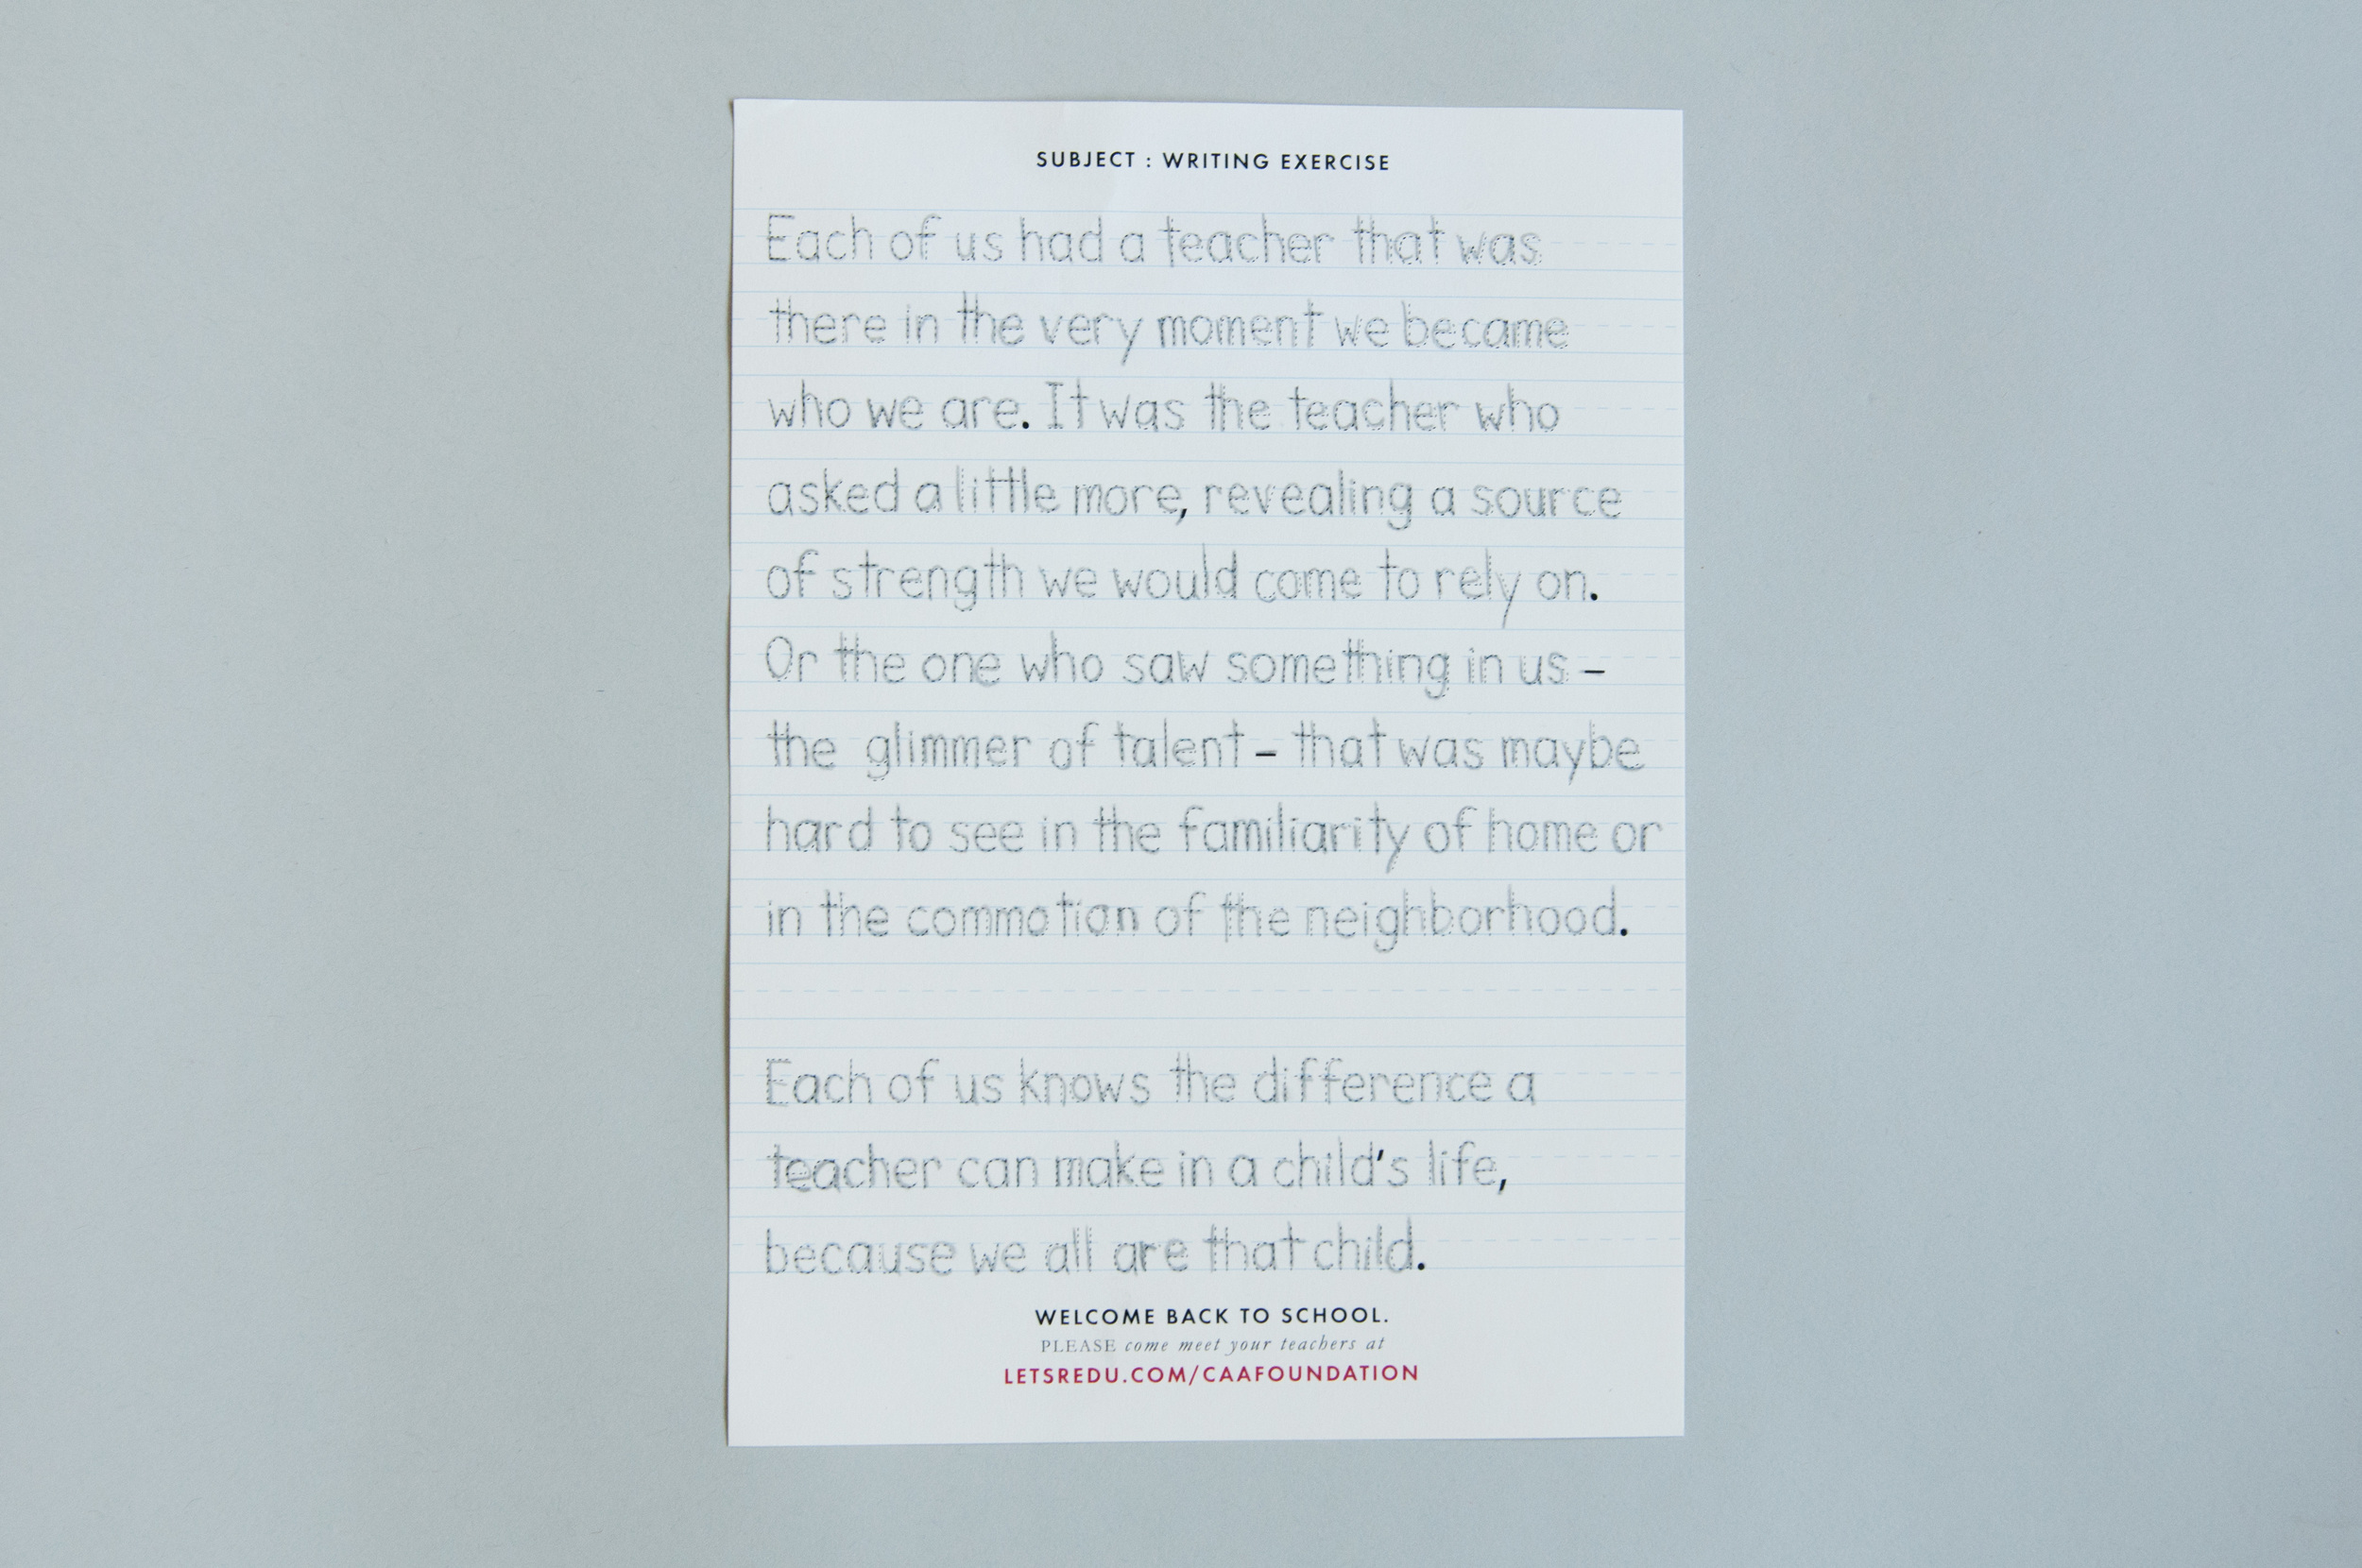 SUBJECT : WRITING EXERCISE
Each of us had a teacher that was
there in the very moment we became
who we are. It was the teacher who
asked a little more, revealing a source
of strength we would come to rely on.
Or the one who saw something in us –
the glimmer of talent – that was maybe
hard to see in the familiarity of home or
in the commotion of the neighborhood.
Each of us knows the difference a
teacher can make in a child's life,
because we all are that child.
WELCOME BACK TO SCHOOL.
PLEASE come meet your teachers at
LETSREDU.COM/CAAFOUNDATION